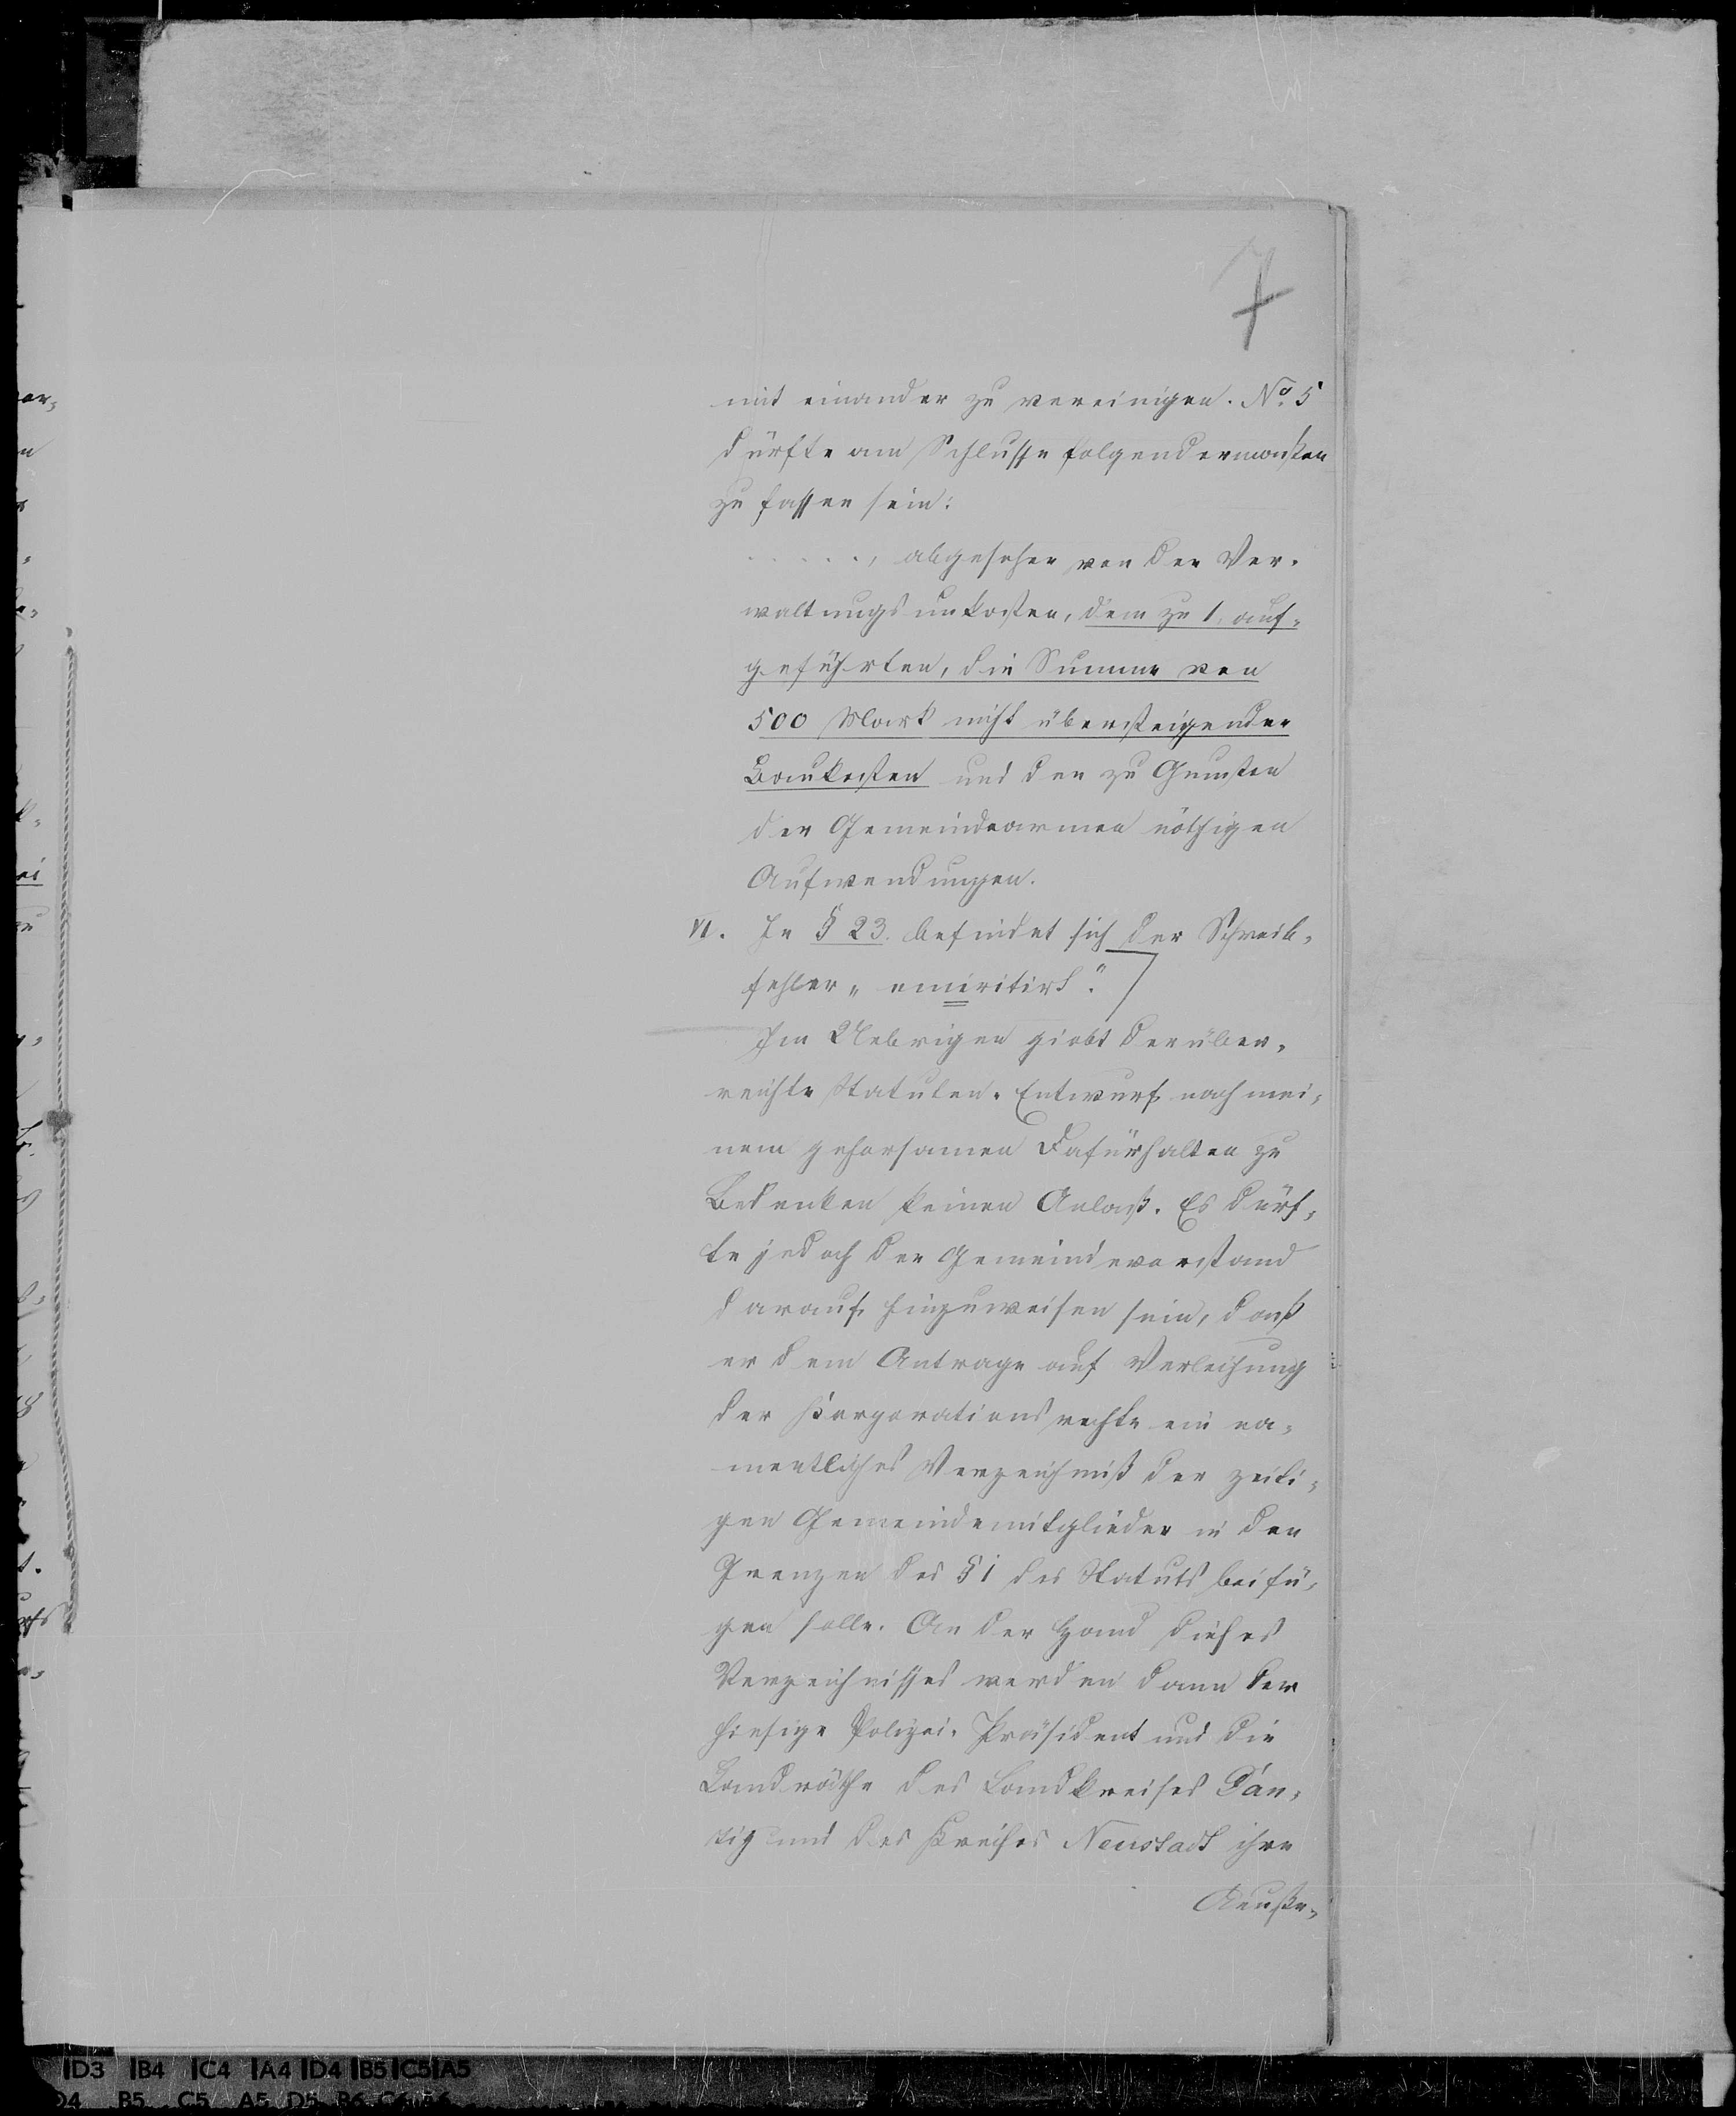 7
mit einander zu vereinigen. No. 5
dürfte am Schlusse folgendermaßen
zu fassen sein:
....., abgesehen von den Ver-
waltungsunkosten, den zu 1. auf-
geführten, die Summe von
500 Mark nicht übersteigenden
Baukosten und den zu Gunsten
der Gemeindearmen nöthigen
Aufwendungen.
VI. In § 23. befindet sich der Schreib-
fehler „emiritirt".
Im Uebrigen giebt der über-
reichte Statuten-Entwurf nach mei-
nem gehorsamen Dafürhalten zu
Bedenken keinen Anlaß. Es dürf-
te jedoch der Gemeindevorstand
darauf hinzuweisen sein, daß
er dem Antrage auf Verleihung
der Korporationsrechte ein na-
mentliches Verzeichniß der zeiti-
gen Gemeindemitglieder in den
Grenzen des § 1 des Statuts beifü-
gen solle. An der Hand dieses
Verzeichnisses werden dann der
hiesige Polizei-Präsident und die
Landräthe des Landkreises Dan-
zig und des Kreises Neustadt ihre
Aeuße-
D3 B4 C4 A4 D4 B5 C5 A5
D4 B5 C5 A5 D5 B6 C6